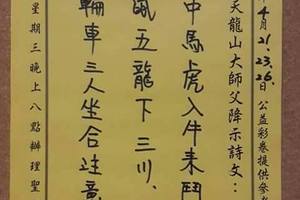 年4月21.23.26.日公益彩卷提供參
天龍山大師父降示詩文：
中馬虎入牛來鬥
鼠五龍下三川、
輪車三人坐合註意
星期三晚上八點辦理聖